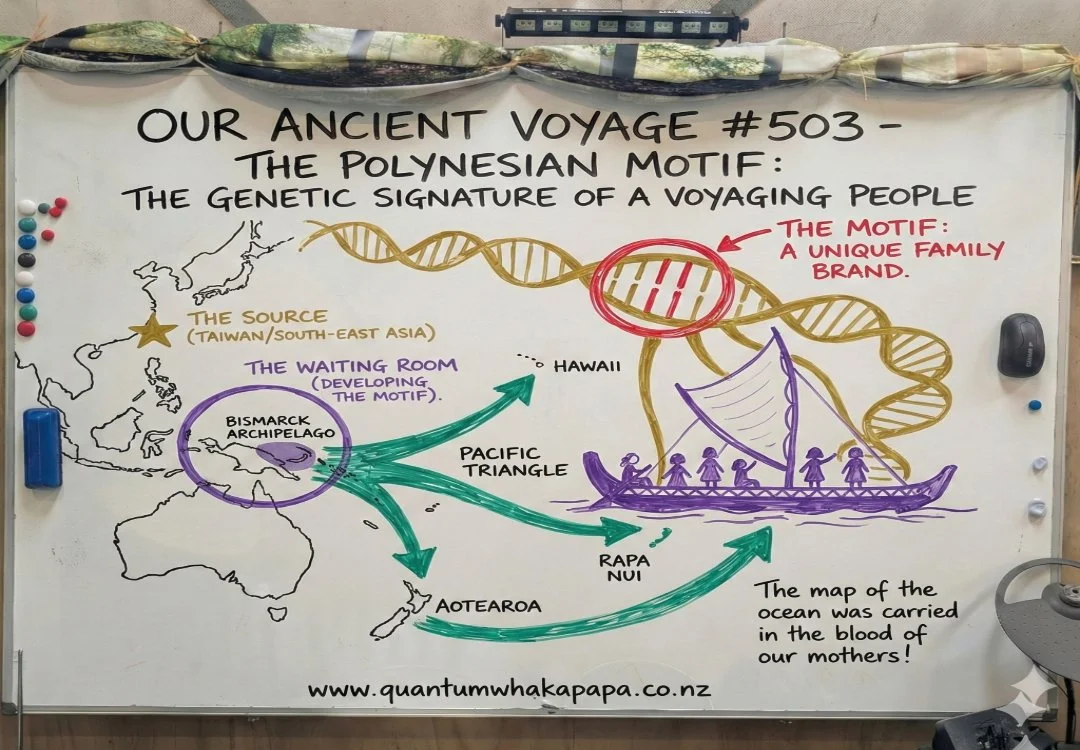 OUR ANCIENT VOYAGE #503 –
THE POLYNESIAN MOTIF:
THE GENETIC SIGNATURE OF A VOYAGING PEOPLE
THE MOTIF:
A UNIQUE FAMILY
BRAND.
THE SOURCE
(TAIWAN/SOUTH-EAST ASIA)
THE WAITING ROOM
(DEVELOPING
THE MOTIF).
HAWAII
BISMARCK
ARCHIPELAGO
PACIFIC
TRIANGLE
RAPA
NUI
AOTEAROA
The map of the
ocean was carried
in the blood of
our mothers!
www.quantumwhakapapa.co.nz